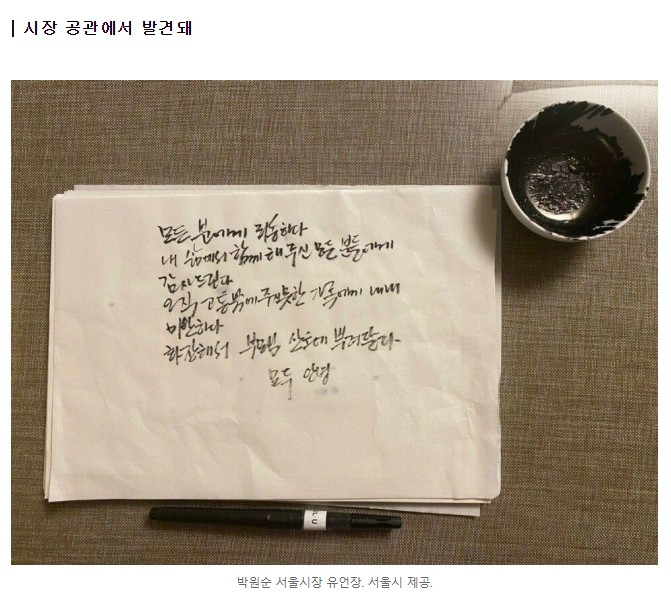 시장 공관에서 발견돼
모든 분에게 죄송하다
내 삶에서 함께 해주신 모든 분들에게
감사드린다
오직 고통밖에 주지 못한 가족에게 내내
미안하다
화장해서 부모님 산소에 뿌려달라
모두 안녕
박원순 서울시장 유언장. 서울시 제공.